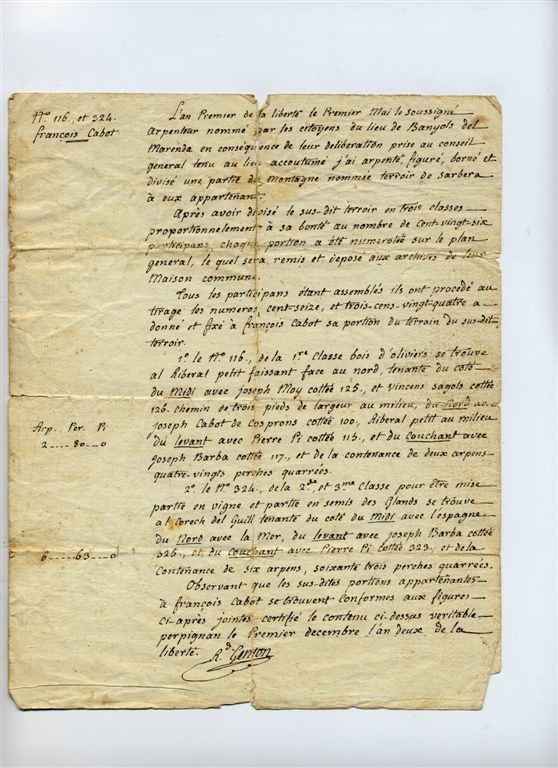 N.º 116, et 324.
François Cabot.
L'an Premier de la liberté le Premier Mai le soussigné
arpenteur nommé par les citoyens du lieu de Banyols del
Marenda en conséquence de leur deliberation prise au conseil
general tenu au lieu accoutumé j'ai arpenté, figuré, borné et
divisé une partie du Montagne nommée terroir de sarbera
à eux appartenant.
Après avoir divisé le sus-dit terroir en trois classes
proportionnelement à sa bonté au nombre de cent-vingt-six
participans, chaque portion a été numerotée sur le plan
general, le quel sera remis et deposé aux archives de leur
Maison commune.
Tous les participans étant assemblés ils ont procedé au
tirage les numeros, cent-seize, et trois-cens-vingt-quatre a
donné et fixé à françois Cabot sa portion du terrain du sus-dit
terroir.
1.º le N.º 116, de la 1.re Classe bois d'oliviers se trouve
al Riberal petit faisant face au nord, tenante du coté
du Midi avec joseph Moy cottée 125, et vincens sagols cottée
126. chemin de trois pieds de largeur au milieu, du Nord avec
joseph Cabot de Cosprons cottée 100, Riberal petit au milieu
du levant avec Pierre Pi cottée 115, et du Couchant avec
joseph Barba cottée 117, et de la contenance de deux arpens
quatre-vingts perches quarrées.
Arp. Per. Pi
2....80..0
2.º le N.º 324, de la 2.de et 3.me Classe pour être mise
partie en vigne et partie en semis des Glands se trouve
al Corech del Guill tenante du coté du Midi avec l'espagne
du Nord avec la Mer, du levant avec joseph Barba cottée
326, et du Couchant avec Pierre Pi cottée 323, et de la
Contenance de six arpens, soixante trois perches quarrées.
6....63...0
Observant que les sus-dites portions appartenantes
à françois Cabot se trouvent Conformes aux figures
ci-après jointes certifié le contenu ci-dessus veritable
perpignan le Premier decembre l'an deux de la
liberté.